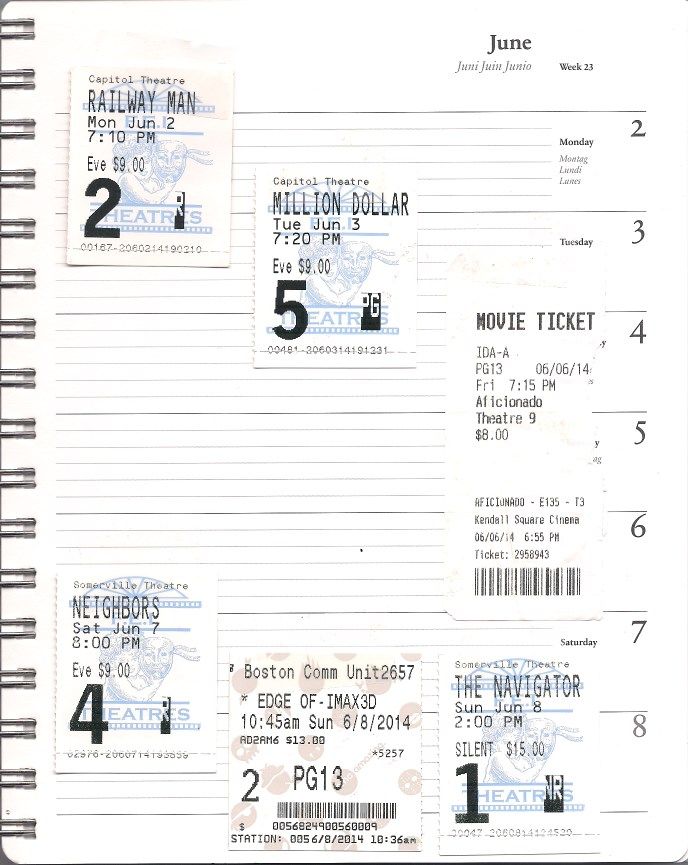 June
Juni Juin Junio Week 23
2
Monday
Montag
Lundi
Lunes
3
Tuesday
4
5
6
7
Saturday
8
Capitol Theatre
RAILWAY MAN
Mon Jun 2
7:10 PM
Eve $9.00
2 R
THEATRES
00167-2060214190210
Capitol Theatre
MILLION DOLLAR
Tue Jun 3
7:20 PM
Eve $9.00
5 PG
THEATRES
00481-2060314191231
MOVIE TICKET
IDA-A
PG13 06/06/14
Fri 7:15 PM
Aficionado
Theatre 9
$8.00
AFICIONADO - E135 - T3
Kendall Square Cinema
06/06/14 6:55 PM
Ticket: 2958943
Somerville Theatre
NEIGHBORS
Sat Jun 7
8:00 PM
Eve $9.00
4 R
THEATRES
02976-2060714193839
Boston Comm Unit2657
* EDGE OF-IMAX3D
10:45am Sun 6/8/2014
AD2AM6 $13.00
*5257
2 PG13
$ 0056824900560009
STATION: 0056/8/2014 10:36am
Somerville Theatre
THE NAVIGATOR
Sun Jun 8
2:00 PM
SILENT $15.00
1 NR
THEATRES
00047-2060814124529